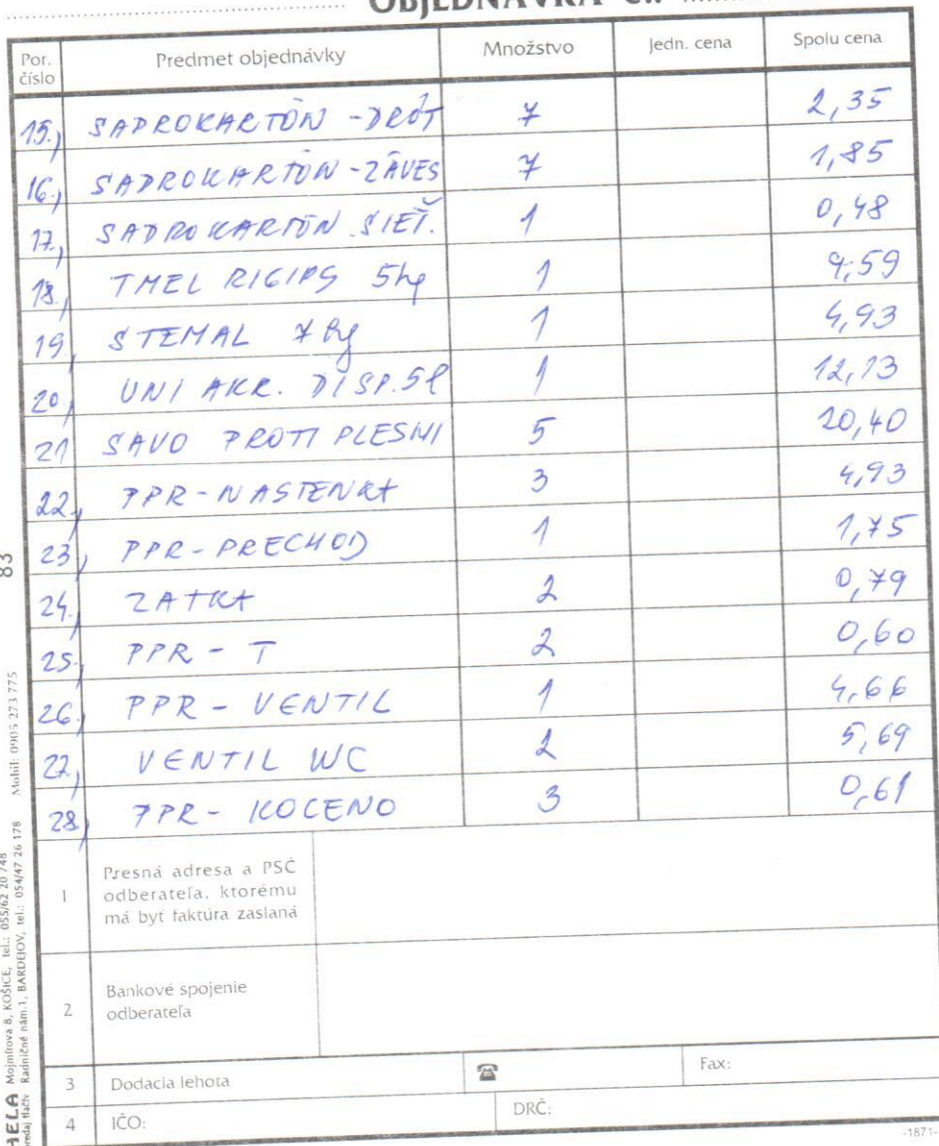 OBJEDNÁVKA č..
Por. číslo Predmet objednávky Množstvo Jedn. cena Spolu cena
15., SADROKARTÓN - DRÓT 7 2,35
16., SADROKARTÓN - ZÁVES 7 1,85
17., SADROKARTÓN SIEŤ. 1 0,48
18., TMEL RIGIPS 5kg 1 9,59
19., STEMAL 7 kg 1 4,93
20., UNI AKR. DISP. 5l 1 12,13
21 SAVO PROTI PLESNI 5 20,40
22., PPR - NASTENKA 3 4,93
23., PPR - PRECHOD 1 1,75
24., ZATKA 2 0,79
25., PPR - T 2 0,60
26., PPR - VENTIL 1 4,66
27., VENTIL WC 2 5,69
28., PPR - KOCENO 3 0,61
1 Presná adresa a PSČ
odberateľa, ktorému
má byť faktúra zaslaná
2 Bankové spojenie
odberateľa
3 Dodacia lehota ☎ Fax:
4 IČO: DRČ:
-1871-
83
HELA Mojmírova 8, KOŠICE, tel.: 055/62 20 748
predaj tlačív Radničné nám.1, BARDEJOV, tel.: 054/47 26 178 Mobil: 0905 273 775